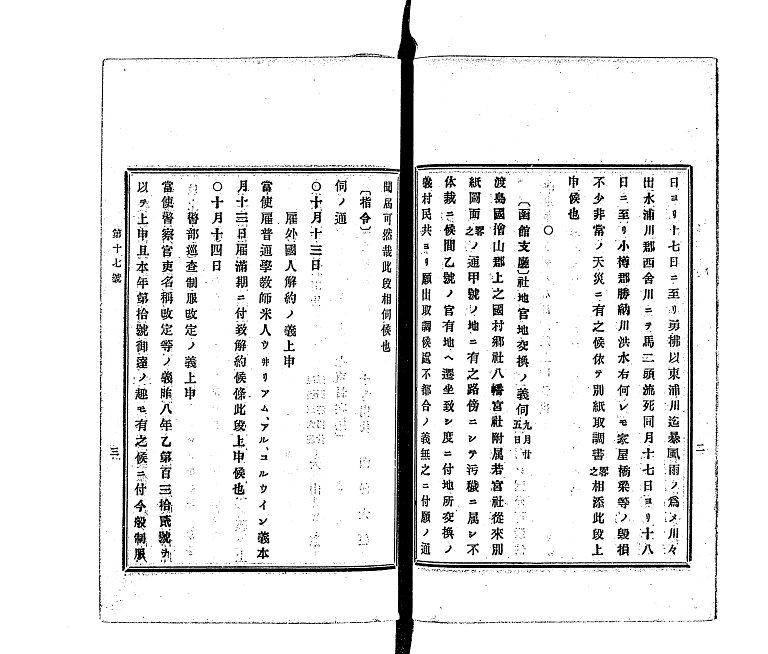 日ヨリ十七日ニ至リ勇拂以東浦川迄暴風雨ノ爲メ川々
出水浦川郡西舍川ニテ馬二頭流死同月十七日ヨリ十八
日ニ至リ小樽郡勝納川洪水右何レモ家屋橋梁等ノ毀損
不少非常ノ天災ニ有之候依テ別紙取調書畧之相添此段上
申候也
〇
〔函館支廳〕社地官地交換ノ義伺九月廿五日
渡島國檜山郡上之國村鄕社八幡宮社附属若宮社從來別
紙圖面畧之ノ通甲號ノ地ニ有之路傍ニシテ汚穢ニ属シ不
体裁ニ候間乙號ノ官有地ヘ遷坐致シ度ニ付地所交換ノ
義村民共ヨリ願出取調候處不都合ノ義無之ニ付願ノ通
二
聞届可然哉此段相伺候也
〔指令〕
伺ノ通
〇十月十三日
雇外國人解約ノ義上申
當使雇普通學教師米人ウ井リアム、アル、コルウイン義本
月十三日雇滿期ニ付致解約候條此段上申候也
〇十月十四日
警部巡査制服改定ノ義上申
當使警察官吏名稱改定等ノ義昨八年乙第百三拾貳號ヲ
以テ上申且本年第拾號御達ノ趣モ有之候ニ付今般制服
第十七號
三